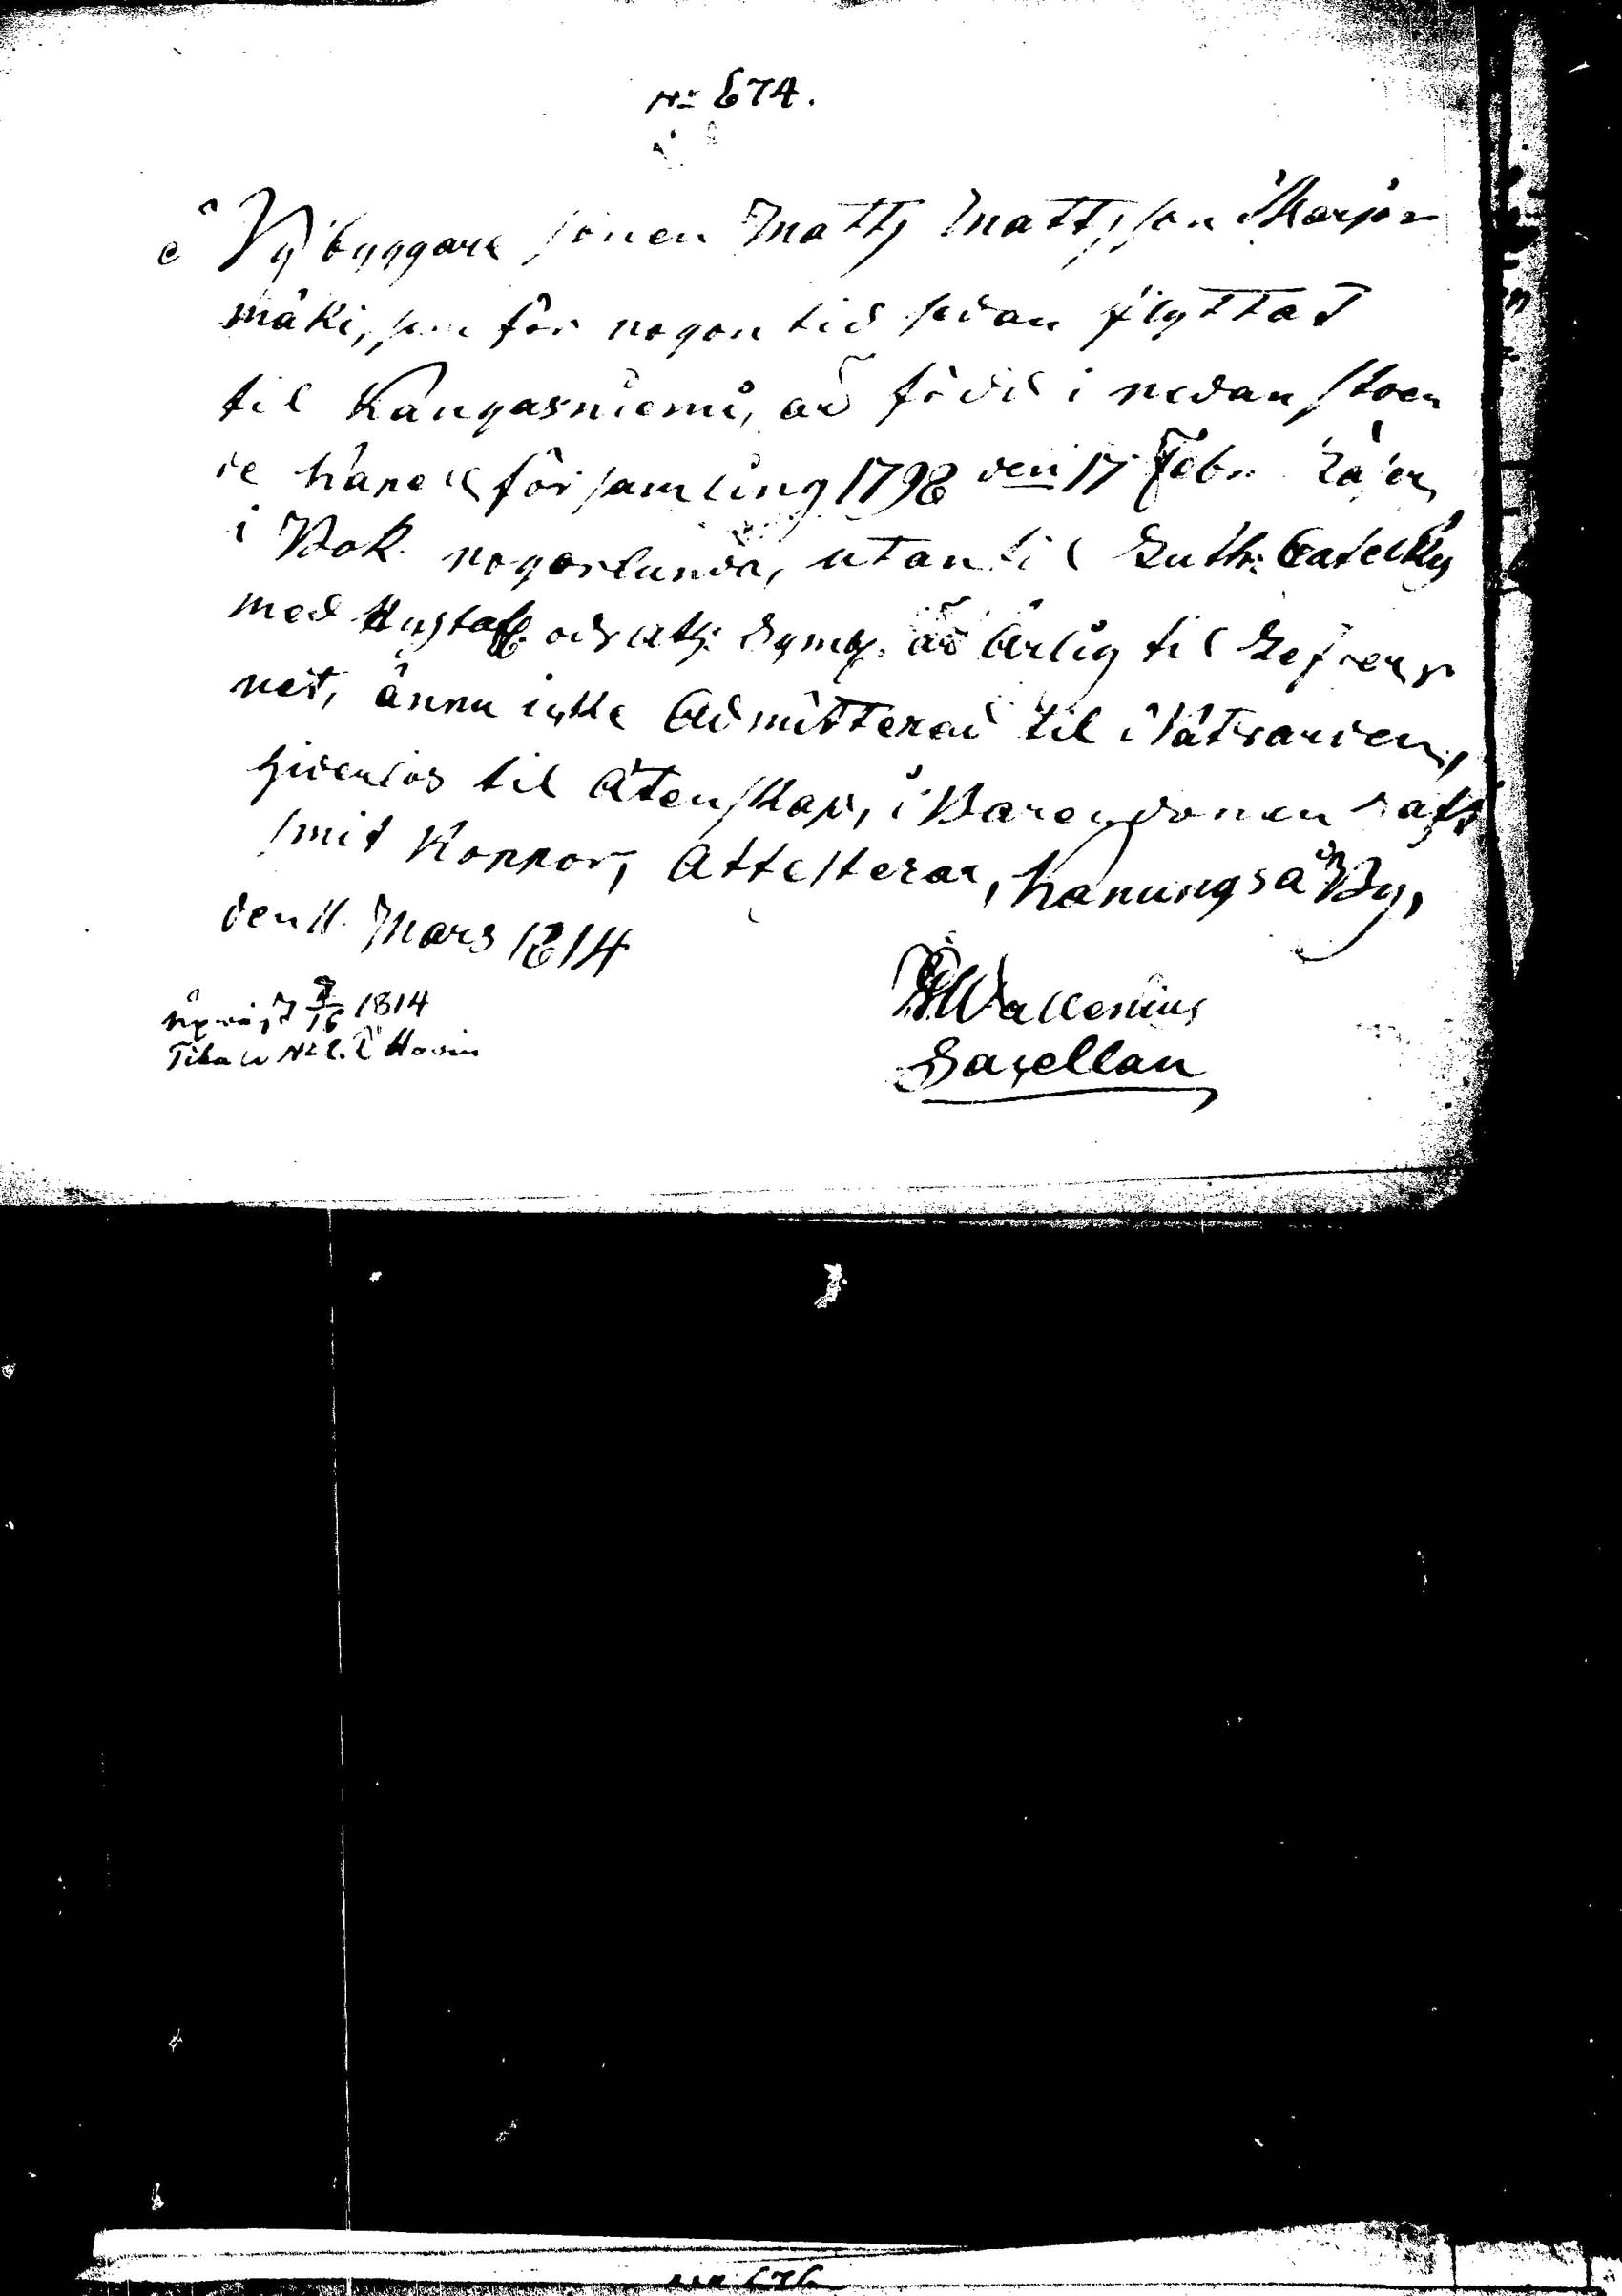 No 674.
Nybyggare sonen Matts Mattsson Karja
mäki, som för nogon tid sedan flyttat
til Kangasniemi, är född i nedanstoen
de Capell församling 1798 den 17 Febr. Läser
i Bok nogorlunda, utantil Luth: Catechs
med Hustafl. och Ath: Symb. är ärlig til Lefver
net, ännu icke Admitterad til Nattvarden,
hinderlös til Äktenskap, i Barndomen haft
smit Koppor, Attesterar, Hanungså By,
den 11. Mars 1814
Wallenius
Sacellan
1814